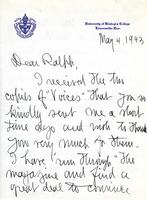 University of Bishop's College
Lennoxville, Que.
May 4, 1943
Dear Ralph,
I received the two
copies of "Voices" that you so
kindly sent me a short
time ago and wish to thank
you very much for them.
I have run through the
magazine and find a
great deal to convince